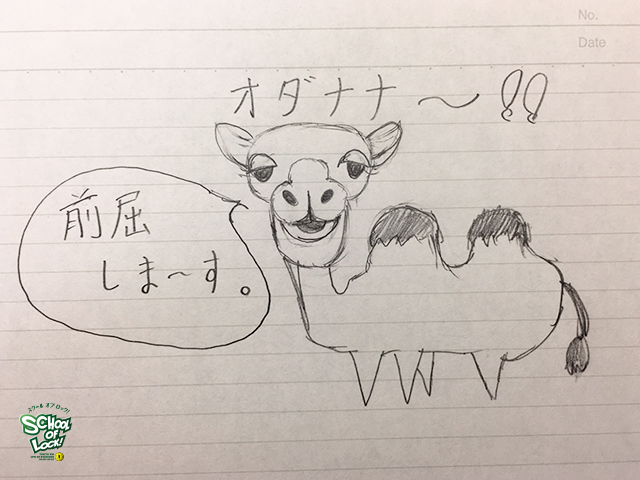 No.
Date
オダナナ〜!!
前屈
しま〜す。
スクール オブ ロック!
SCHOOL
OF
LOCK!